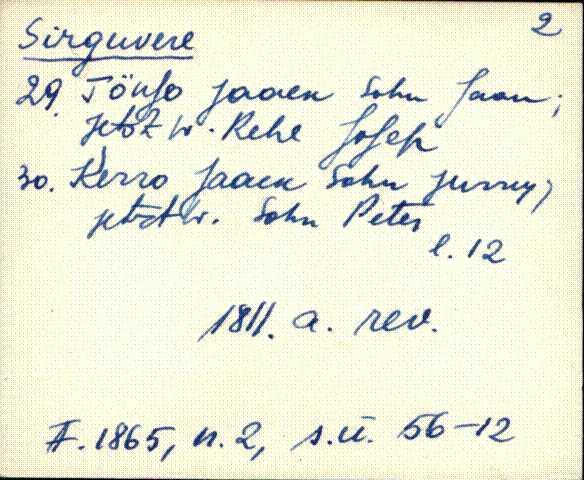 2
Sirguvere
29. Tönso Jaack Sohn Jaan;
jetzt W. Rehe Josep
30. Kerro Jaack Sohn Jurry;
jetzt W. Sohn Peter
l. 12
1811. a. rev.
F. 1865, n. 2, s.ü. 56-12